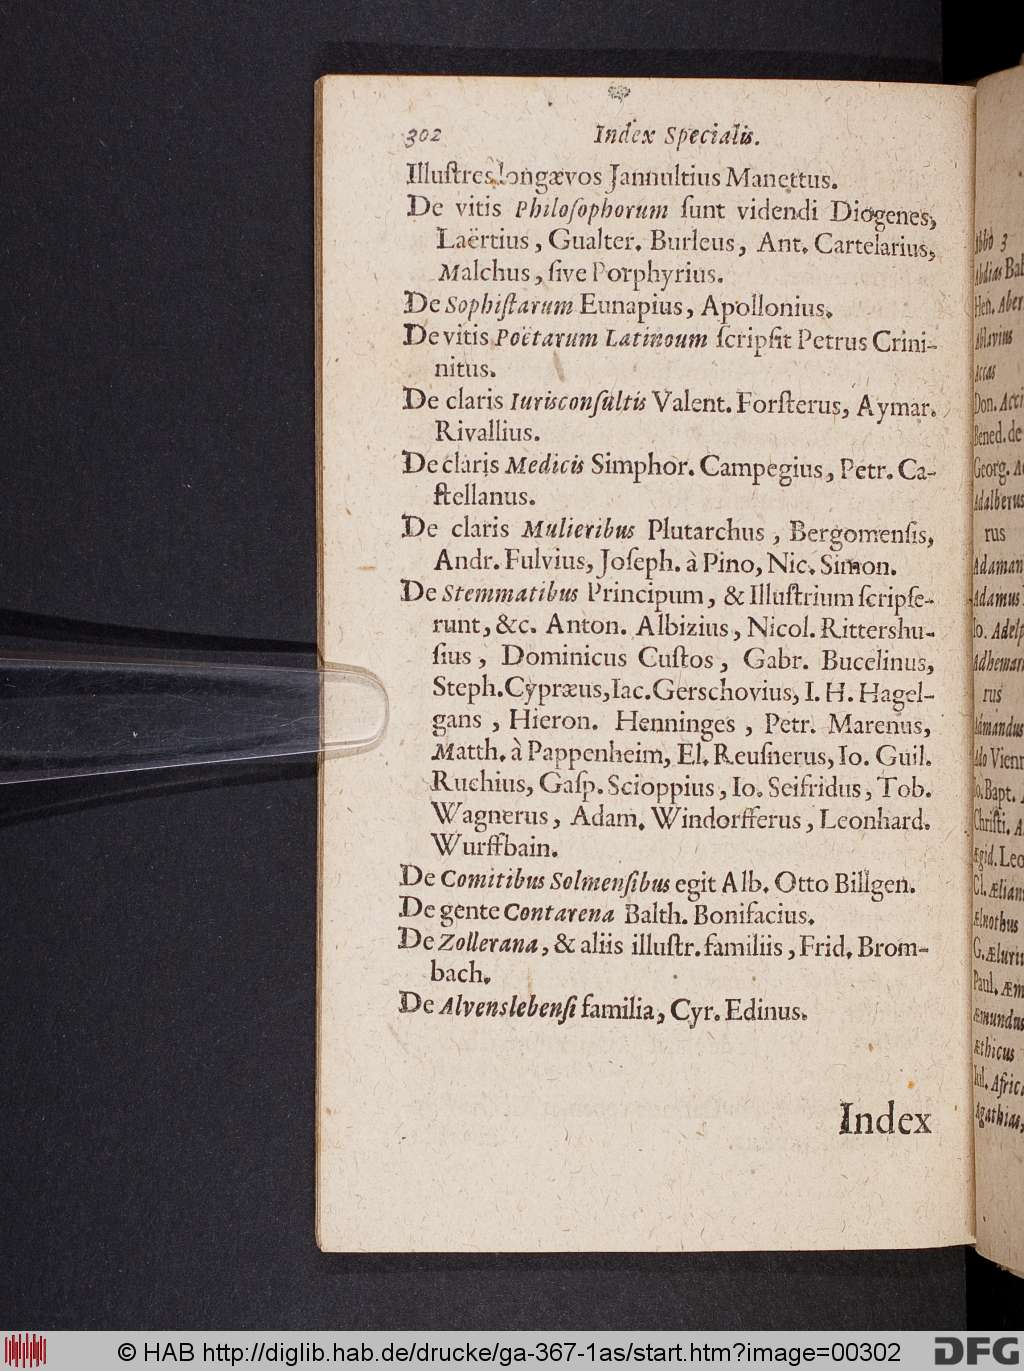 302 Index Specialis.
Illuſtres longævos Jannultius Manettus.
De vitis Philoſophorum ſunt videndi Diogenes,
Laërtius, Gualter. Burleus, Ant. Cartelarius,
Malchus, ſive Porphyrius.
De Sophiſtarum Eunapius, Apollonius.
De vitis Poëtarum Latinoum ſcripſit Petrus Crini-
nitus.
De claris Iurisconſultis Valent. Forſterus, Aymar.
Rivallius.
De claris Medicis Simphor. Campegius, Petr. Ca-
ſtellanus.
De claris Mulieribus Plutarchus, Bergomenſis,
Andr. Fulvius, Joſeph. à Pino, Nic. Simon.
De Stemmatibus Principum, & Illuſtrium ſcripſe-
runt, &c. Anton. Albizius, Nicol. Rittershu-
ſius, Dominicus Cuſtos, Gabr. Bucelinus,
Steph. Cypræus, Iac. Gerschovius, I. H. Hagel-
gans, Hieron. Henninges, Petr. Marenus,
Matth. à Pappenheim, El. Reuſnerus, Io. Guil.
Ruchius, Gaſp. Scioppius, Io. Seifridus, Tob.
Wagnerus, Adam. Windorfferus, Leonhard.
Wurffbain.
De Comitibus Solmenſibus egit Alb. Otto Billgen.
De gente Contarena Balth. Bonifacius.
De Zollerana, & aliis illuſtr. familiis, Frid. Brom-
bach.
De Alvenslebenſi familia, Cyr. Edinus.
Index
Abbo 3
Abdias
Hen.
Ablavius
Accas
Don.
Bened. de
Georg.
Adalberus
rus
Adamus
Io.
rus
Ado
Io. Bapt.
Chriſti.
Ægid.
Cl.
Ælnothus
G.
Paul.
Æmundus
Æthicus
Iul.
Agathias,
© HAB http://diglib.hab.de/drucke/ga-367-1as/start.htm?image=00302
DFG